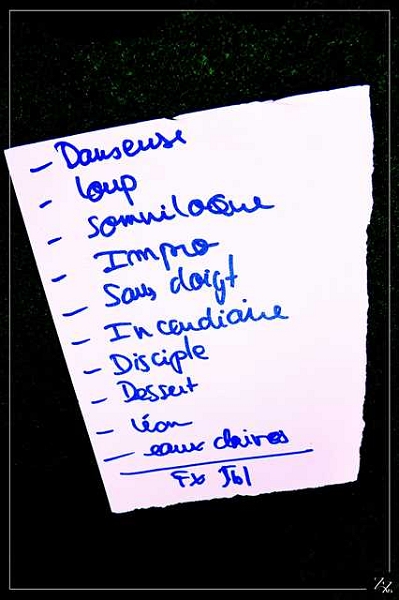 - Danseuse
- Loup
- Somniloque
- Impro
- Sans doigt
- Incendiaire
- Disciple
- Dessert
- Léon
- eaux claires